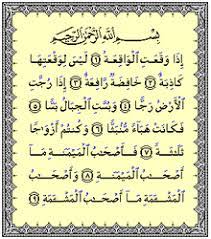 بِسْمِ اللَّهِ الرَّحْمَٰنِ الرَّحِيمِ
إِذَا وَقَعَتِ الْوَاقِعَةُ ۝١ لَيْسَ لِوَقْعَتِهَا
كَاذِبَةٌ ۝٢ خَافِضَةٌ رَّافِعَةٌ ۝٣ إِذَا رُجَّتِ
الْأَرْضُ رَجًّا ۝٤ وَبُسَّتِ الْجِبَالُ بَسًّا ۝٥
فَكَانَتْ هَبَاءً مُّنۢبَثًّا ۝٦ وَكُنتُمْ أَزْوَاجًا
ثَلَاثَةً ۝٧ فَأَصْحَابُ الْمَيْمَنَةِ مَا
أَصْحَابُ الْمَيْمَنَةِ ۝٨ وَأَصْحَابُ
الْمَشْأَمَةِ مَا أَصْحَابُ الْمَشْأَمَةِ ۝٩